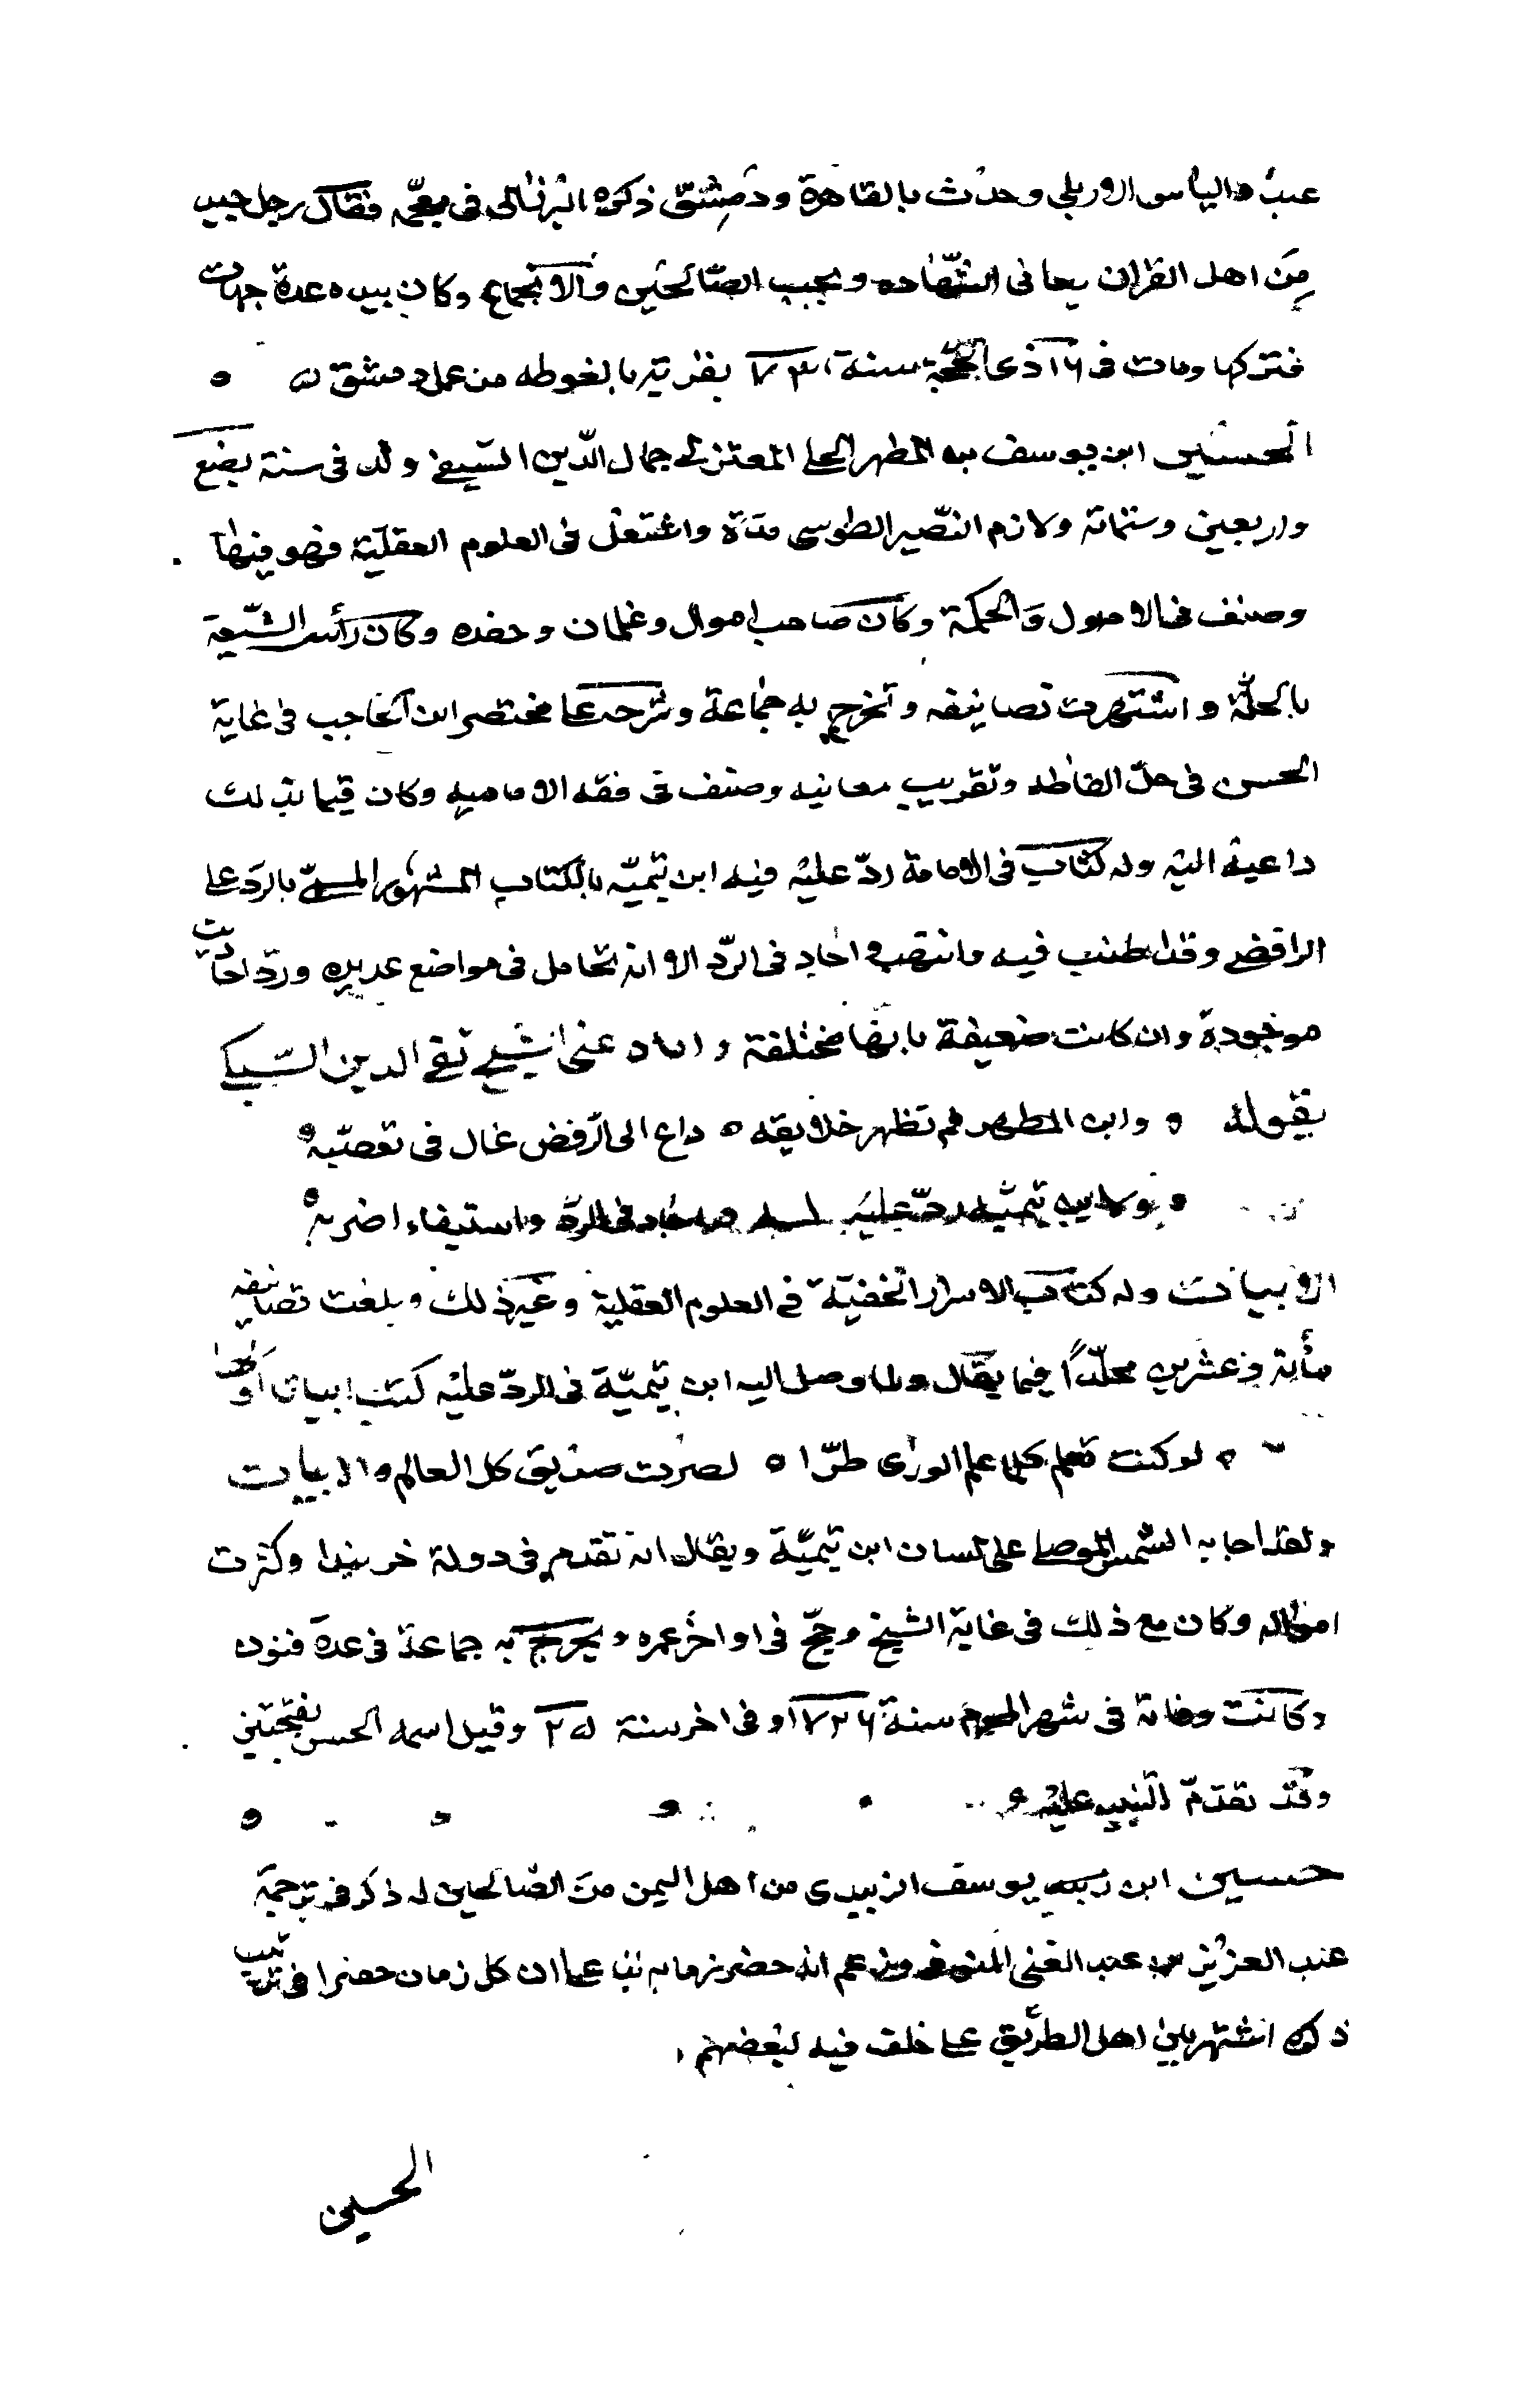 عبد والياس الاربلي وحدث بالقاهرة ودمشق ذكره البرزالى فى معجمه فقال رجل جيد
من اهل القران يعانى الشهاده ويحب الصالحين والانجماع وكان بيده عدة جهات
فتركها ومات فى ١٦ ذى الحجة سنة بقرية بالغوطه من عمل دمشق
الحسين ابن يوسف بن المطهر الحلى المعتزلى جمال الدين الشيعى ولد فى سنة بضع
واربعين وستمائة ولازم النصير الطوسى مدة واشتغل فى العلوم العقلية فمهر فيها
وصنف فى الاصول والحكمة وكان صاحب اموال وغلمان وحفده وكان رأس الشيعة
بالحلة واشتهرت تصانيفه وتخرج به جماعة وشرحه على مختصر ابن الحاجب فى غاية
الحسن فى حل الفاظه وتقريب معانيه وصنف فى فقه الاماميه وكان قيما بذلك
داعية اليه وله كتاب فى الامامة ردّ عليه فيه ابن تيميّه بالكتاب المشهور المسمى بالردّ على
الرافضى وقد اطنب فيه واجاد فى الردّ الا انه تحامل فى مواضع عديده وردّ احاديث
موجودة وان كانت ضعيفة بانها مختلقة عنى الشيخ تقى الدين السبكى
بقوله ٥ وابن المطهر لم تظهر خلايقه ٥ داع الى الرفض غال فى تعصبه ٥
ولابن تيميّه ردّ عليه فى الردّ واستيفاء اضربه ٥
الابيات وله كتاب الاسرار الخفيّة فى العلوم العقلية وغير ذلك وبلغت تصانيفه
مأية وعشرين مجلّداً فيما يقال ولما وصل اليه ابن تيميّة فى الردّ عليه كتب ابياتا اولها
٥ لو كنت تعلم كلما علم الورى طرّا ٥ لصرت صديق كل العالم ٥ الابيات
وقد اجابه الشمس الموصلى على لسان ابن تيميّة ويقال انه تقدم فى دولة خربندا وكثرت
امواله وكان مع ذلك فى غاية الشح وحجّ فى اواخر عمره وتخرج به جماعة فى عدة فنون
وكانت وفاته فى شهر المحرم سنة ٧٢٦ او فى اخر سنة ٢٥ وقيل اسمه الحسن بفتحتين
وقد تقدم التنبيه عليه
حسين ابن يوسف الزبيدى من اهل اليمن من الصالحين له ذكر فى ترجمة
عبد العزيز بن عبد الغنى المنوفى وزعم انه حضر على ان كل زمان خضرا فى ترتيب
ذكره اشتهر بين اهل الطريق على خلف فيه لبعضهم
الحسين